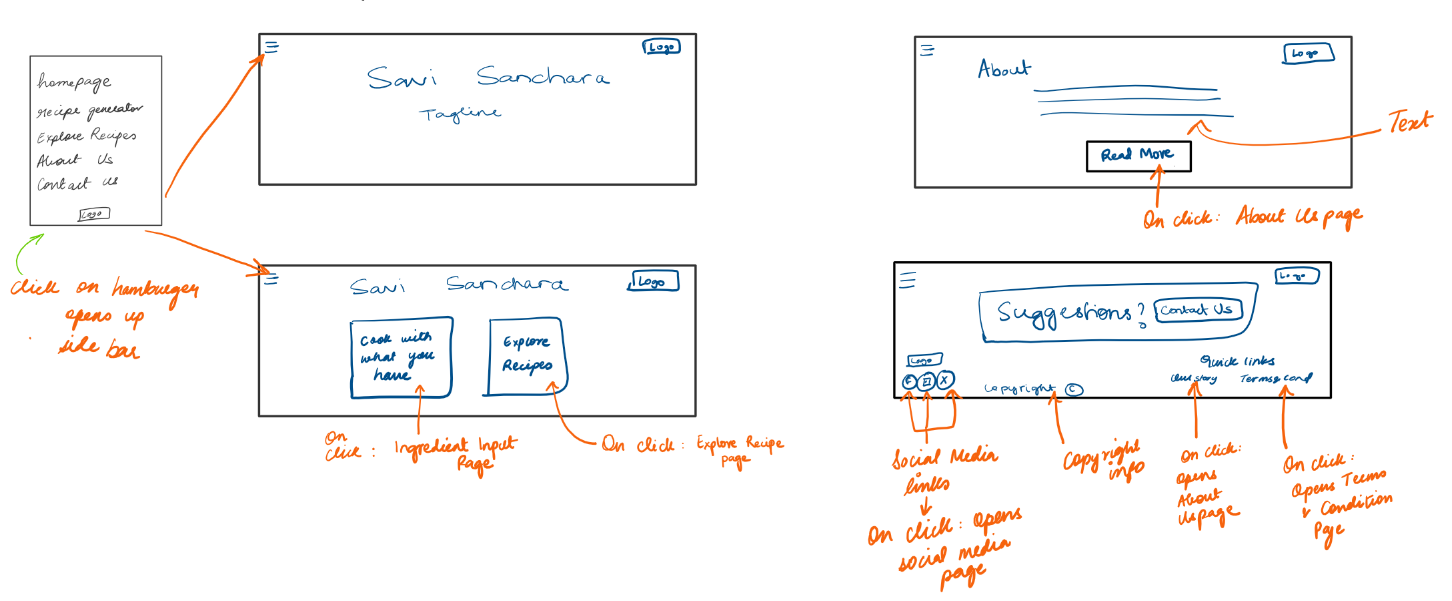 homepage
recipe generator
Explore Recipes
About Us
Contact us
Logo
Click on hamburger
opens up
side bar
Logo
Savi Sanchara
Tagline
Savi Sanchara
Logo
Cook with
what you
have
Explore
Recipes
On
click : Ingredient Input
Page
On click : Explore Recipe
page
Logo
About
Text
Read More
On click : About Us page
Logo
Suggestions?
Contact Us
Logo
Quick links
Terms & cond
X
Copyright ©
Social Media
links
On click : opens
social media
page
Copyright
info
On click:
opens
About
Us page
On click :
Opens Terms
& Condition
Page